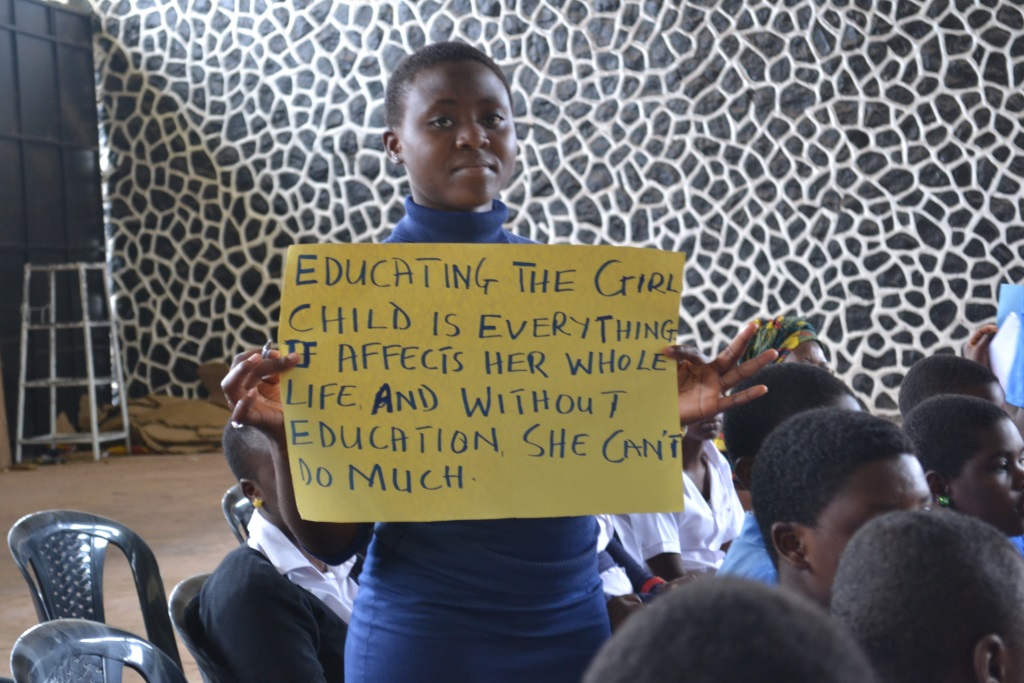 EDUCATING THE GIRL
CHILD IS EVERYTHING
IT AFFECTS HER WHOLE
LIFE, AND WITHOUT
EDUCATION, SHE CAN'T
DO MUCH.